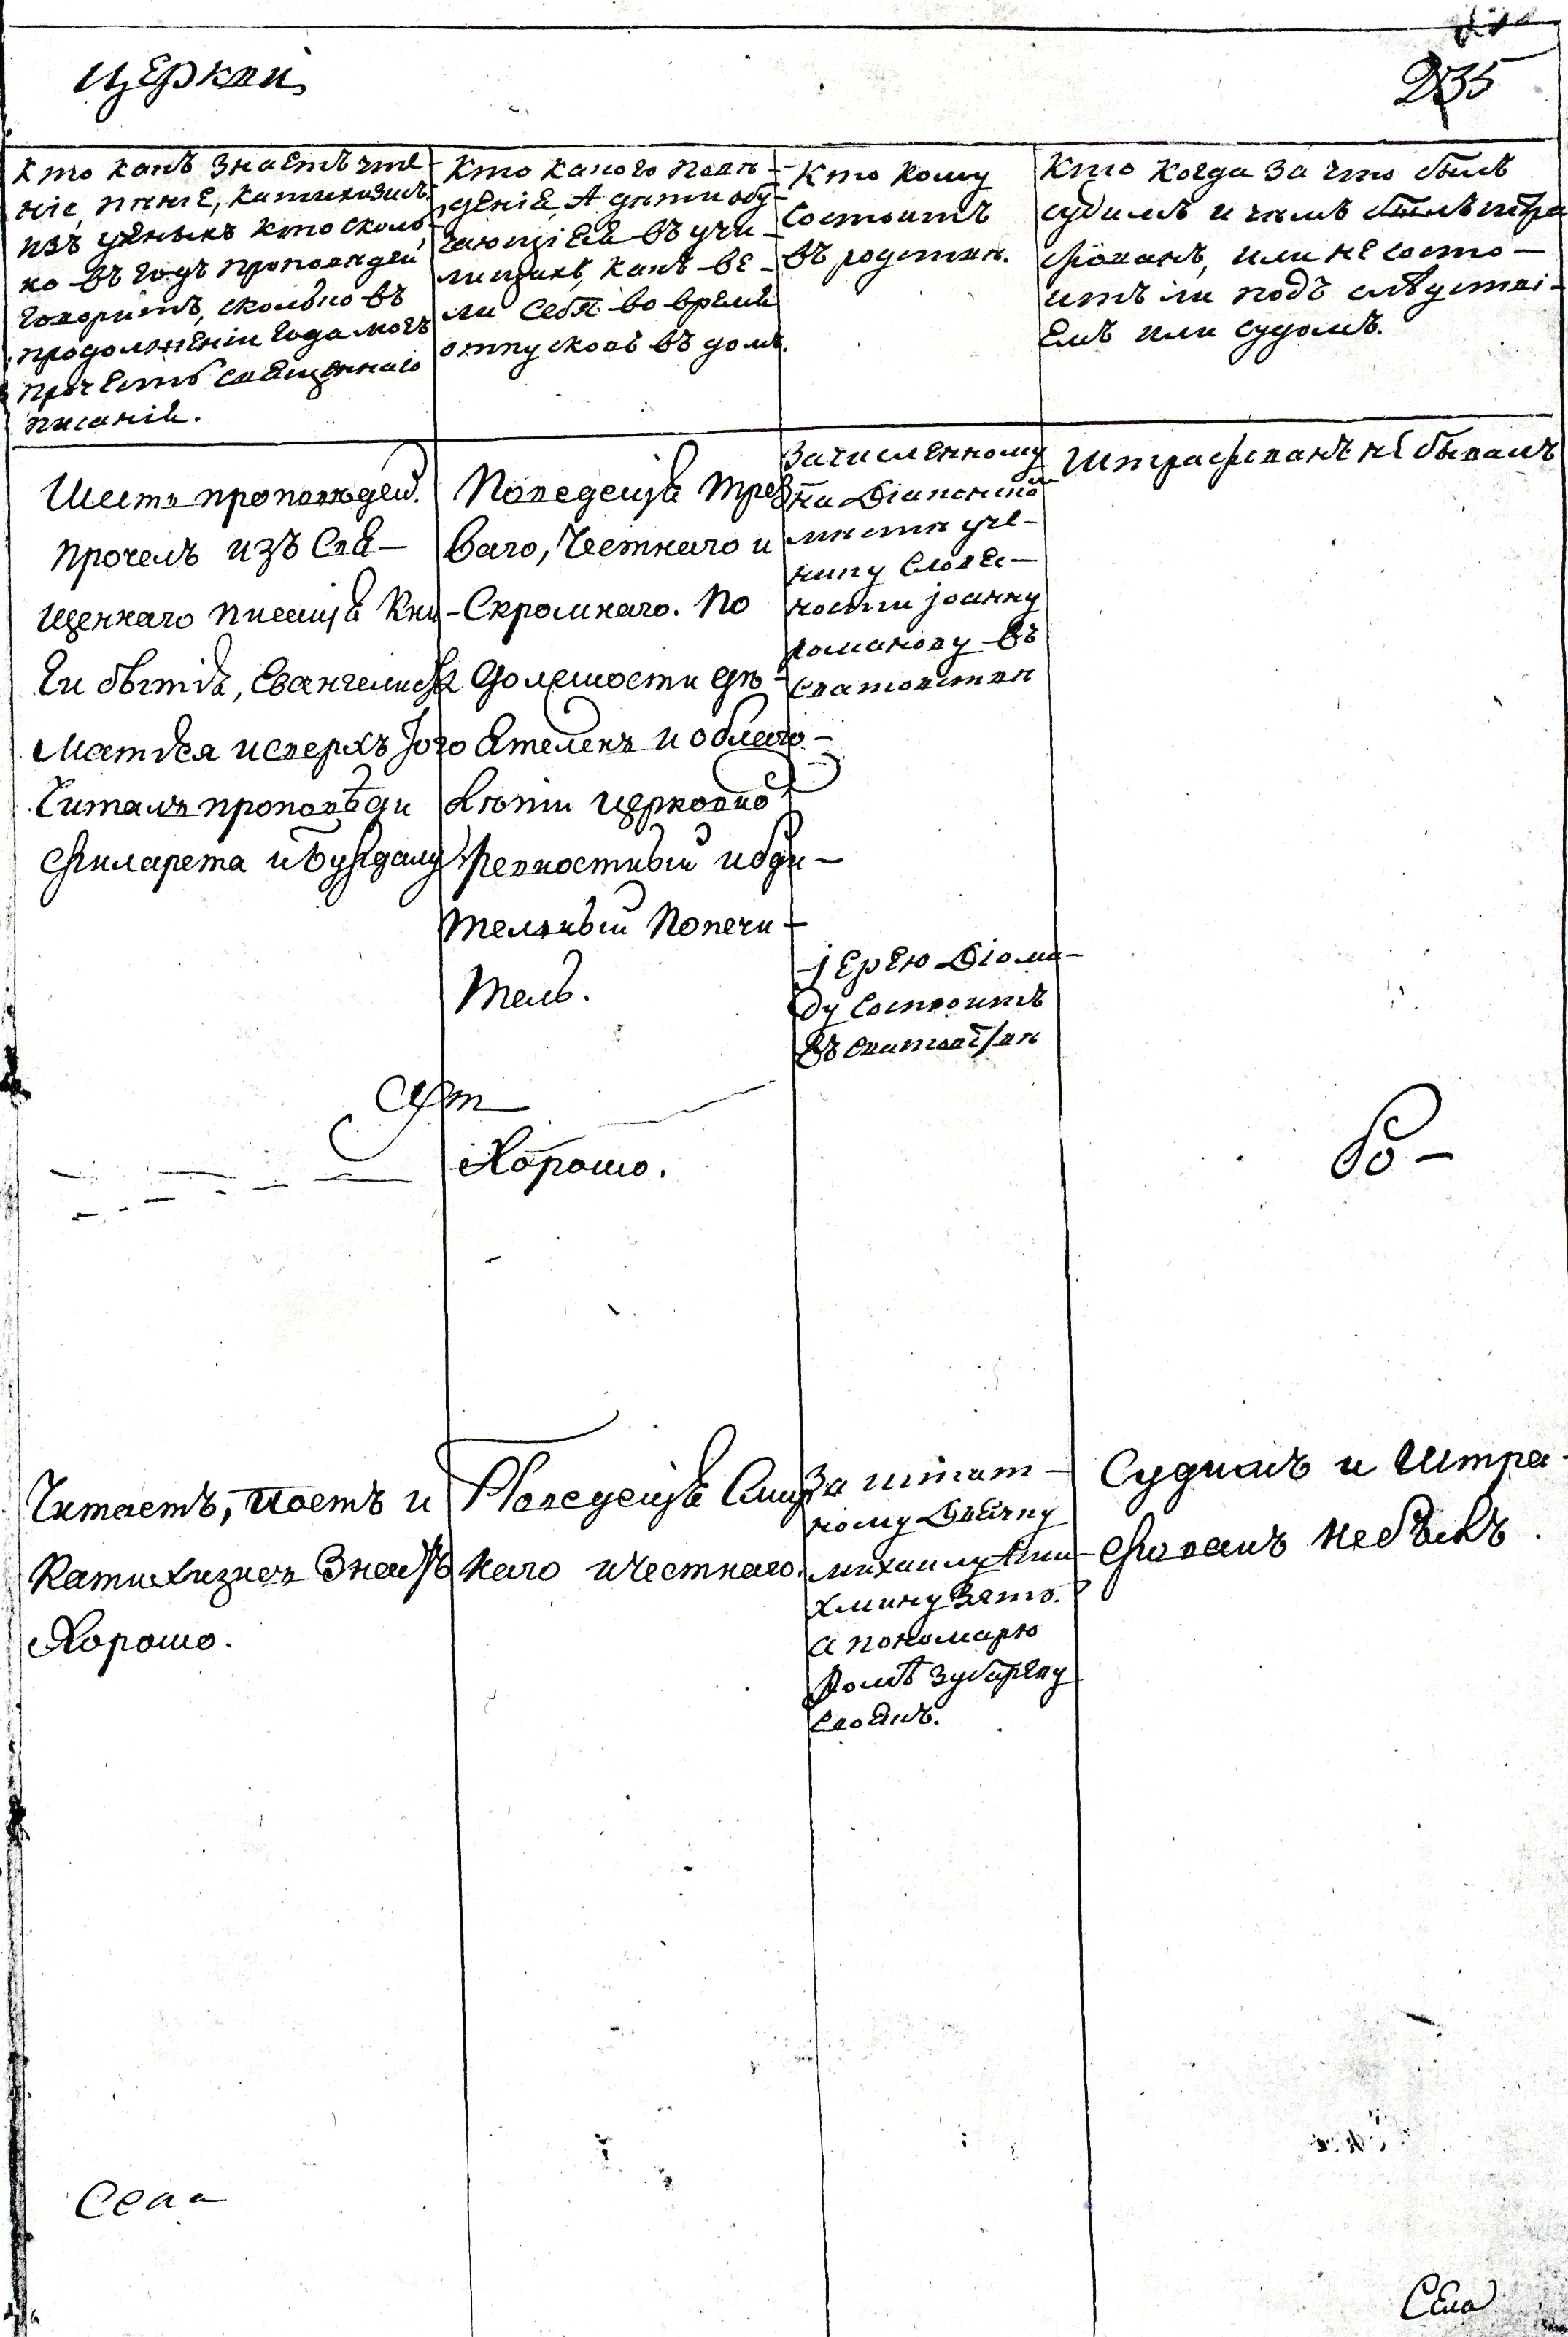 церкви
235
Кто какъ знаетъ чте-
ніе, пѣніе, катихизисъ,
изъ ученыхъ кто сколь-
ко въ годъ проповѣдей
говоритъ, сколько въ
продолженіи года могъ
прочесть священнаго
писанія.
Кто какого пове-
денія, А дѣти обу-
чающіеся въ учи-
лищахъ, какъ ве-
ли себя во время
отпусковъ въ домъ.
Кто кому
состоитъ
въ родствѣ.
Кто когда за что былъ
судимъ и чѣмъ штра
фованъ, или не состо-
итъ ли подъ слѣдстві-
емъ или судомъ.
Шесть проповѣдей.
Прочелъ изъ Свя-
щеннаго писанія Кни-
ги бытія, Евангелиста
Матѳея и сверхъ того
Читалъ проповѣди
Филарета и
Поведенія трез
ваго, Честнаго и
Скромнаго. По
должности дѣ-
ятеленъ и о благо-
лѣпіи церковно
ревностный и бди-
тельный Попечи-
тель.
Зачисленному
на Діаконское
мѣсто уче-
нику Словес-
ности Іоанну
Романову въ
сватовствѣ
Іерею Діоми-
ду Состоитъ
въ сватовствѣ
Штрафованъ не бывалъ
Хорошо.
Читаетъ, поетъ и
Катихизисъ Знаетъ
Хорошо.
Поведенія Смир
наго и честнаго.
За штат-
ному Дьячку
Михаилу
зять.
а пономарю
Ѳомѣ Зубареву
своякъ.
Судимъ и Штра-
фованъ не былъ.
Села
Села